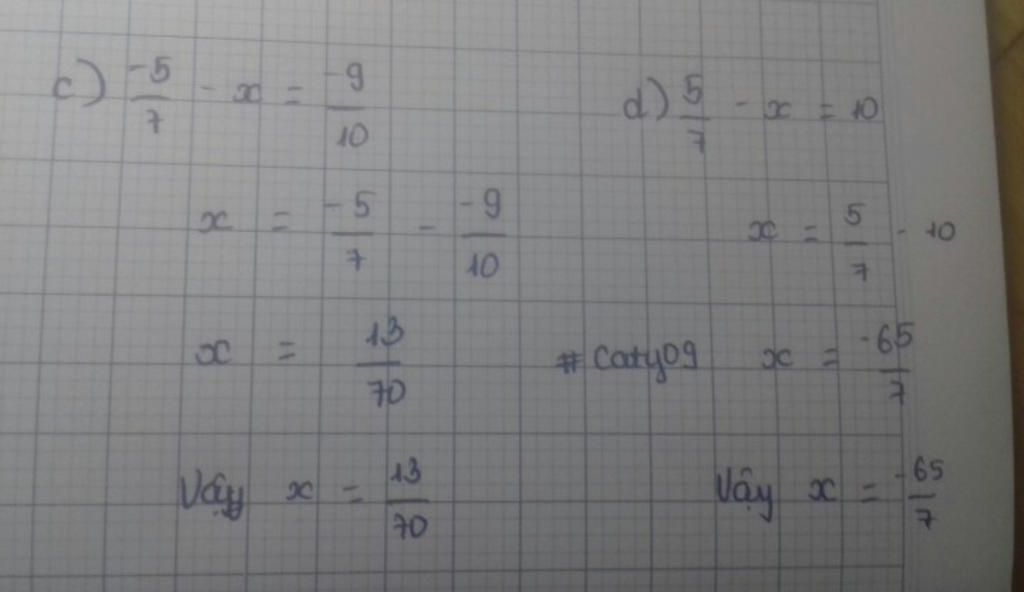 c) -5/7 - x = -9/10
x = -5/7 - -9/10
x = 13/70
Vậy x = 13/70
d) 5/7 - x = 10
x = 5/7 - 10
# caty09 x = -65/7
Vậy x = -65/7